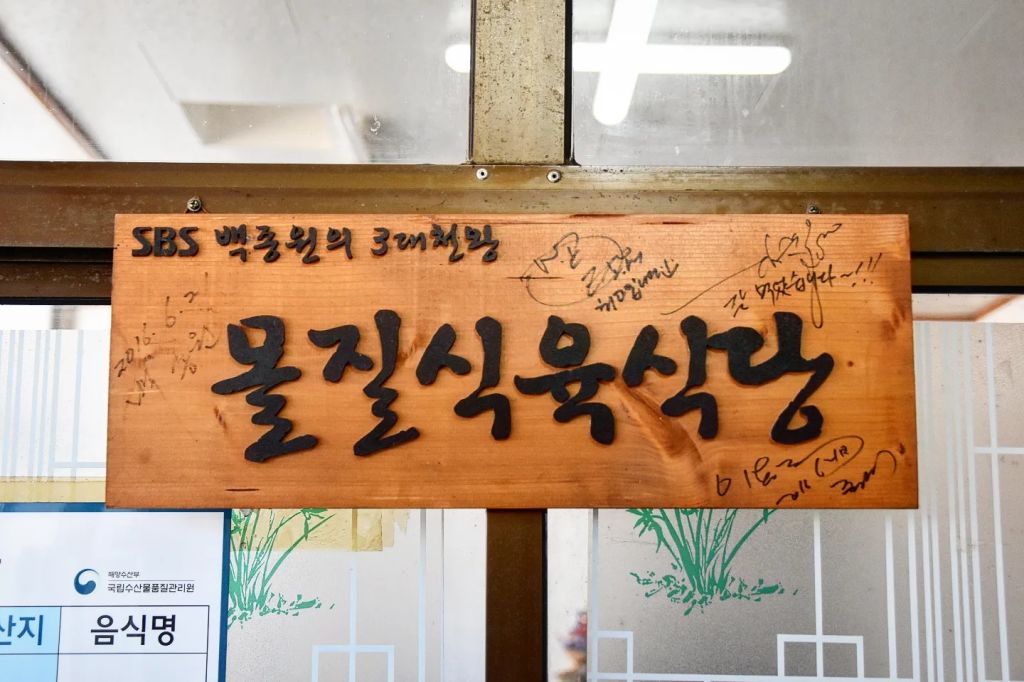 SBS 백종원의 3대천왕
잘 먹었습니다~!!!
2016. 6.
몰질식육식당
해양수산부
국립수산물품질관리원
산지
음식명